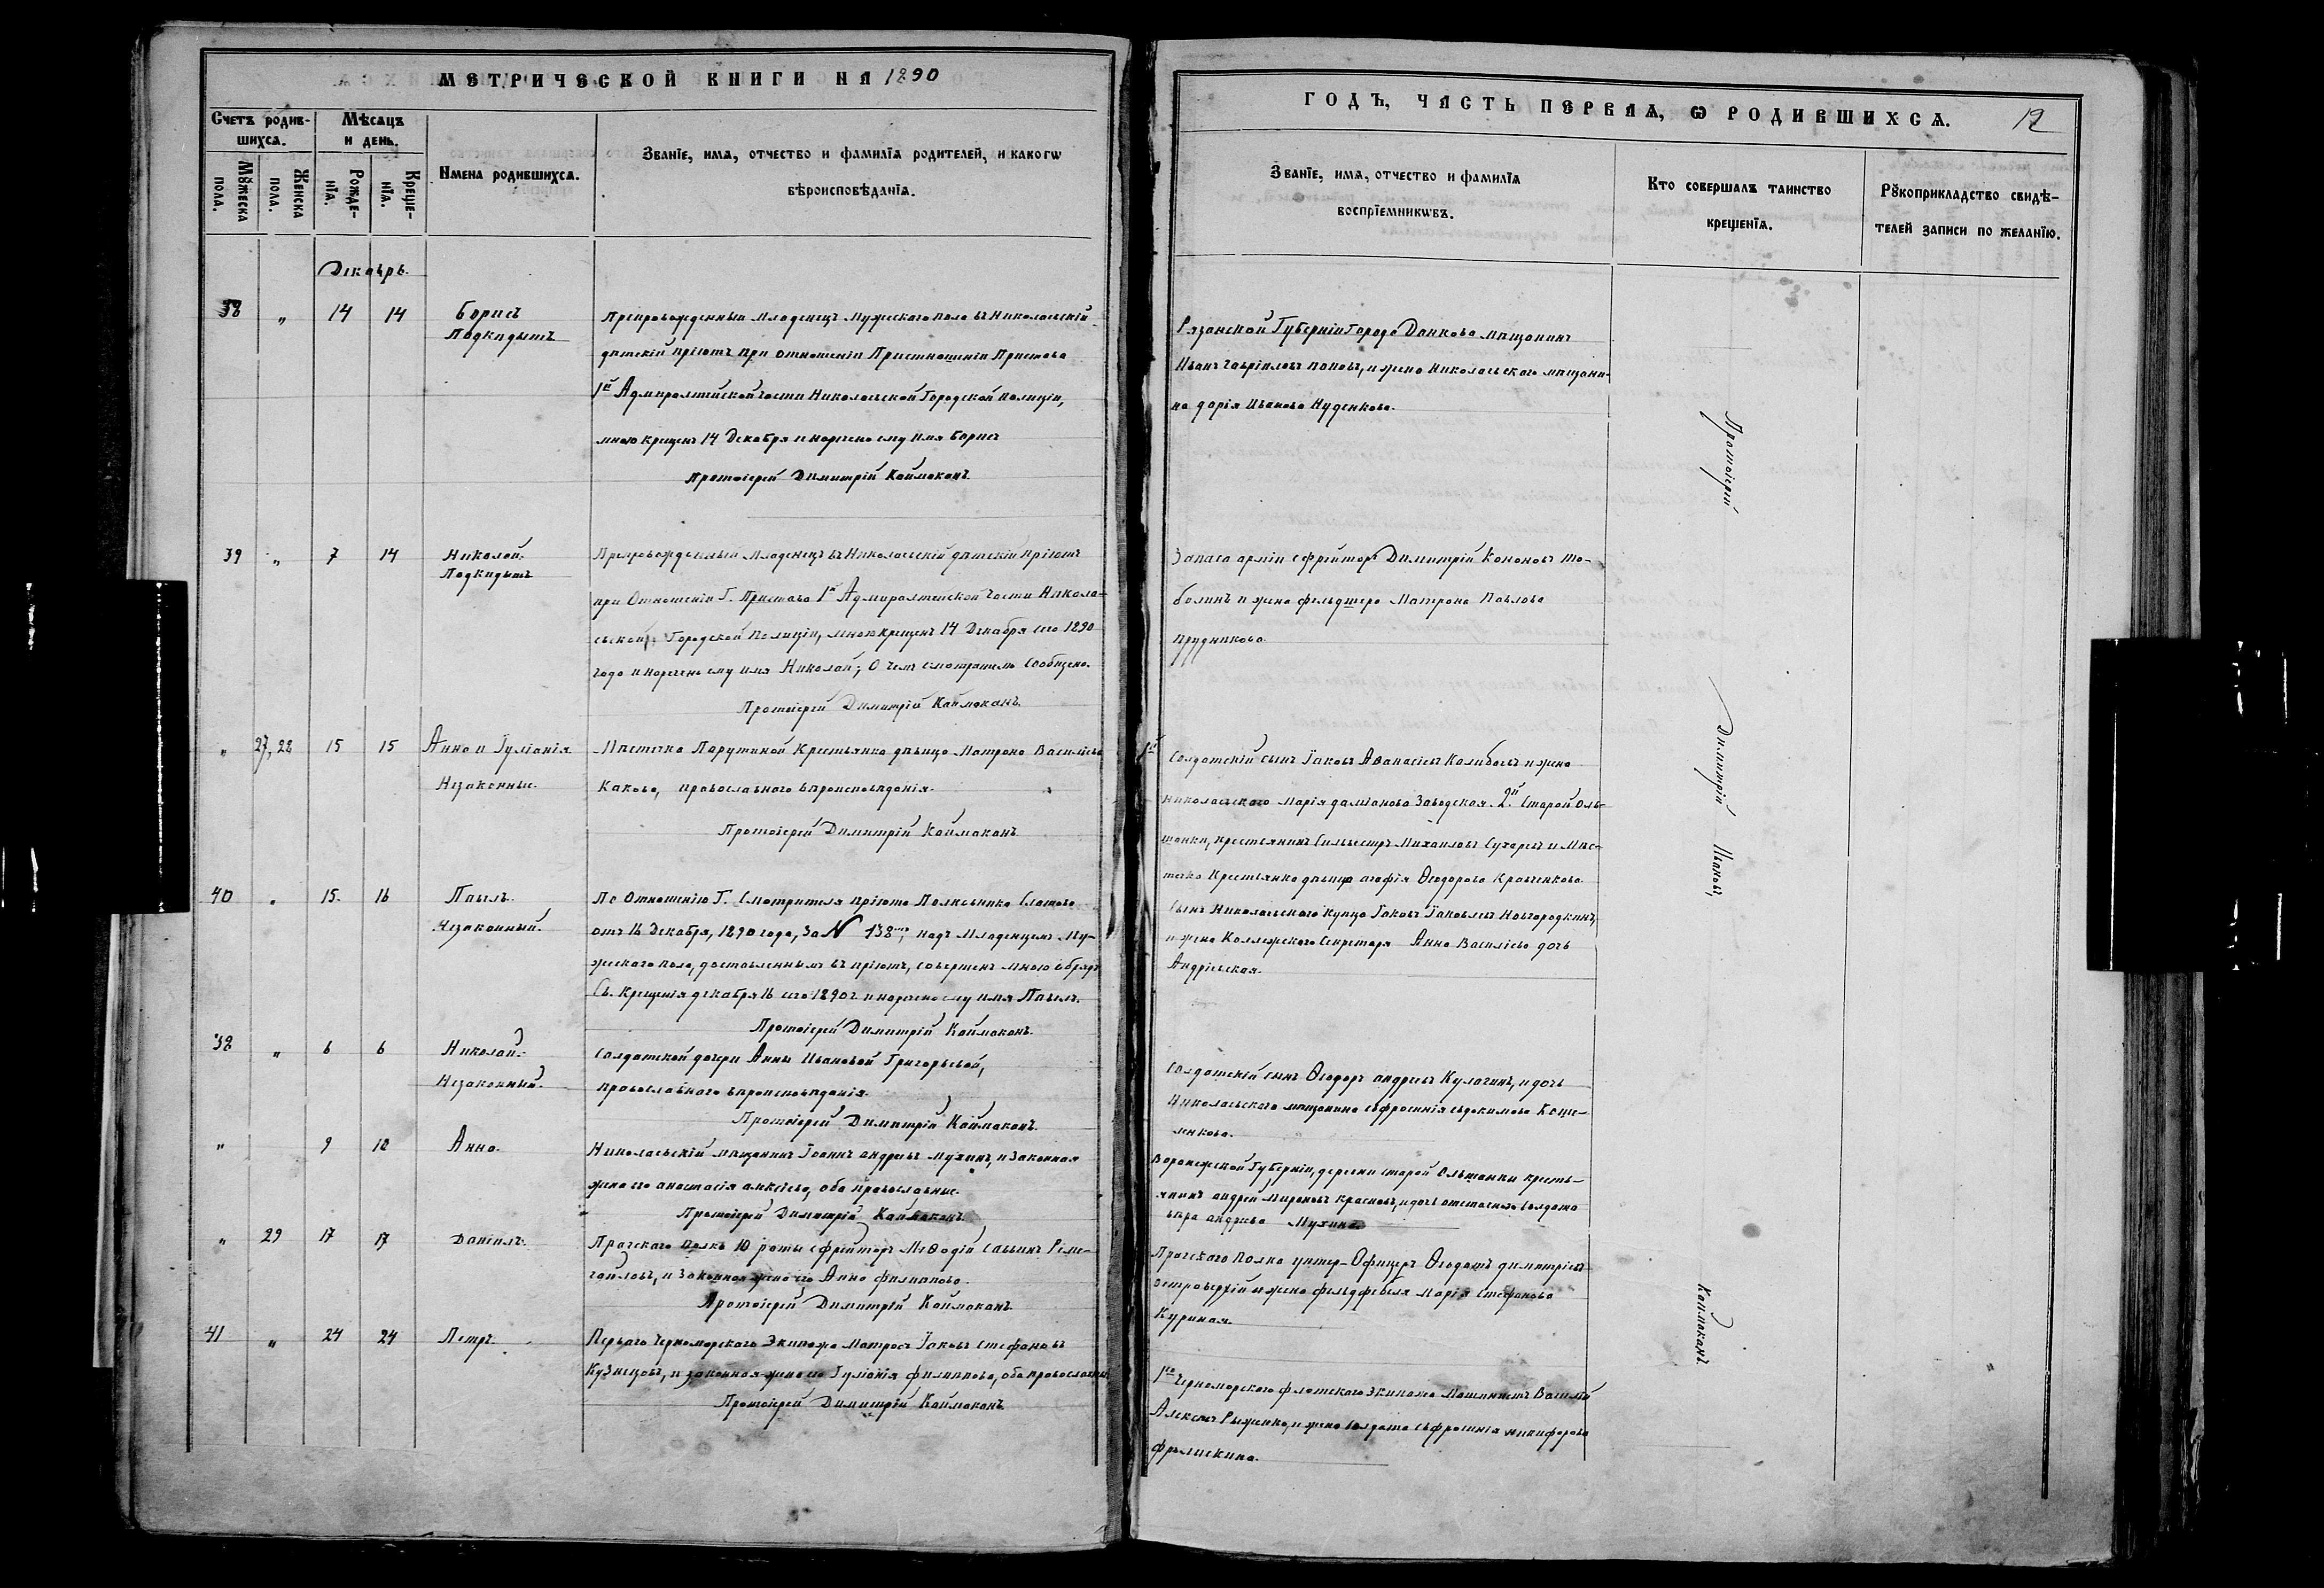 МЕТРИЧЕСКОЙ КНИГИ НА 1890
Счетъ родив-
шихсѧ.
Мѣсѧцъ
и день.
Мꙋжеска
пола.
Женска
пола.
Рожде-
нїѧ.
Креще-
нїѧ.
Имена родившихсѧ.
Званїе, имѧ, отчество и фамилїѧ родителей, и какогѡ
вѣроисповѣданїѧ.
Декабрь.
38 „ 14 14 Борисъ
Подкидышъ
Препровожденный младенецъ мужескаго пола въ Николаевскій
дѣтскій пріютъ при отношеніи Пристава
1й Адмиралтейской части Николаевской Городской полиціи,
мною крещенъ 14 Декабря и наречено ему имя Борисъ
Протоіерей Димитрій Каймаканъ.
39 „ 7 14 Николай
Подкидышъ
Препровожденный младенецъ въ Николаевскій дѣтскій пріютъ
при Отношеніи Г. Пристава 1й Адмиралтейской части Никола-
евской Городской Полиціи, мною крещенъ 14 Декабря сего 1890
года и наречено ему имя Николай; О чемъ смотрителю сообщено.
Протоіерей Димитрій Каймаканъ.
„ 27, 28 15 15 Анна и Іуліанія
Незаконные.
Мѣстечка Парутиной Крестьянка дѣвица Матрона Василіева
Какова, православнаго вѣроисповѣданія.
Протоіерей Димитрій Каймаканъ
40 „ 15. 16 Павелъ.
Незаконный.
По Отношенію Г. Смотрителя пріюта Полковника
отъ 16 Декабря, 1890 года, за N 138, надъ младенцемъ му-
жескаго пола, доставленнымъ въ пріютъ, совершенъ мною обрядъ
Св. Крещенія декабря 16 сего 1890 г. и наречено ему имя Павелъ.
Протоіерей Димитрій Каймаканъ.
38 „ 6 6 Николай.
Незаконный.
Солдатской дочери Анны Ивановой Григорьевой,
православнаго вѣроисповѣданія.
Протоіерей Димитрій Каймаканъ.
„ 9 10 Анна.
Николаевскій мѣщанинъ Іоаннъ андреевъ мухинъ, и законная
жена его анастасія алексѣева, оба православные.
Протоіерей Димитрій Каймаканъ
„ 29 17 17 Даніилъ.
Пражскаго полка 10 роты ефрейторъ Меѳодій Саввинъ
и законная жена его Анна филиппова.
Протоіерей Димитрій Каймаканъ
41 „ 24 24 Петръ.
Перваго Черноморскаго Экипажа матросъ Іаковъ Стефановъ
Кузнецовъ, и законная жена его Іуліанія филиппова, оба православные
Протоіерей Димитрій Каймаканъ
ГОДЪ, ЧАСТЬ ПЕРВАѦ, Ѡ РОДИВШИХСѦ. 12
Званїе, имѧ, отчество и фамилїѧ
воспрїемникѡвъ.
Кто совершалъ таинство
крещенїѧ.
Рꙋкоприкладство свидѣ-
телей записи по желанїю.
Рязанской Губерніи города Данкова мѣщанинъ
Иванъ Гавріиловъ поповъ, и жена Николаевскаго мѣщани-
на дарія Иванова Нуденкова.
Запаса арміи ефрейторъ Димитрій Кононовъ то-
болинъ и жена фельдшера Матрона Павлова
прудникова.
1й Солдатскій сынъ Іаковъ Аѳанасіевъ и жена
Николаевскаго Марія даміанова Заводская. 2й Старой Оль-
шанки, крестьянинъ Сильвестръ Михаиловъ Сухаревъ и мѣс-
течка Крестьянка дѣвица агафія Ѳеодорова Кравченкова.
Сынъ Николаевскаго купца Іаковъ Іаковлевъ Новгородкинъ,
и жена Коллежскаго Секретаря Анна Василіева дочь
Андріевская.
Солдатскій сынъ Ѳеодоръ андреевъ Кулагинъ, и дочь
Николаевскаго мѣщанина евфросинія евдокимова Коше-
ленкова.
Воронежской Губерніи, деревни старой Ольшанки кресть-
янинъ андрей мироновъ красновъ, и дочь отставнаго солдата
вѣра андреева Мухина.
Пражскаго полка унтер-Офицеръ Ѳеодотъ димитріевъ
островерхій и жена фельдфебеля марія стефанова
Курина.
1го Черноморскаго флотскаго экипажа машинистъ Василій
Алексѣевъ Рыженко, и жена солдата евфросинія никифорова
Протоіерей
Димитрій Ивановъ
Каймаканъ.